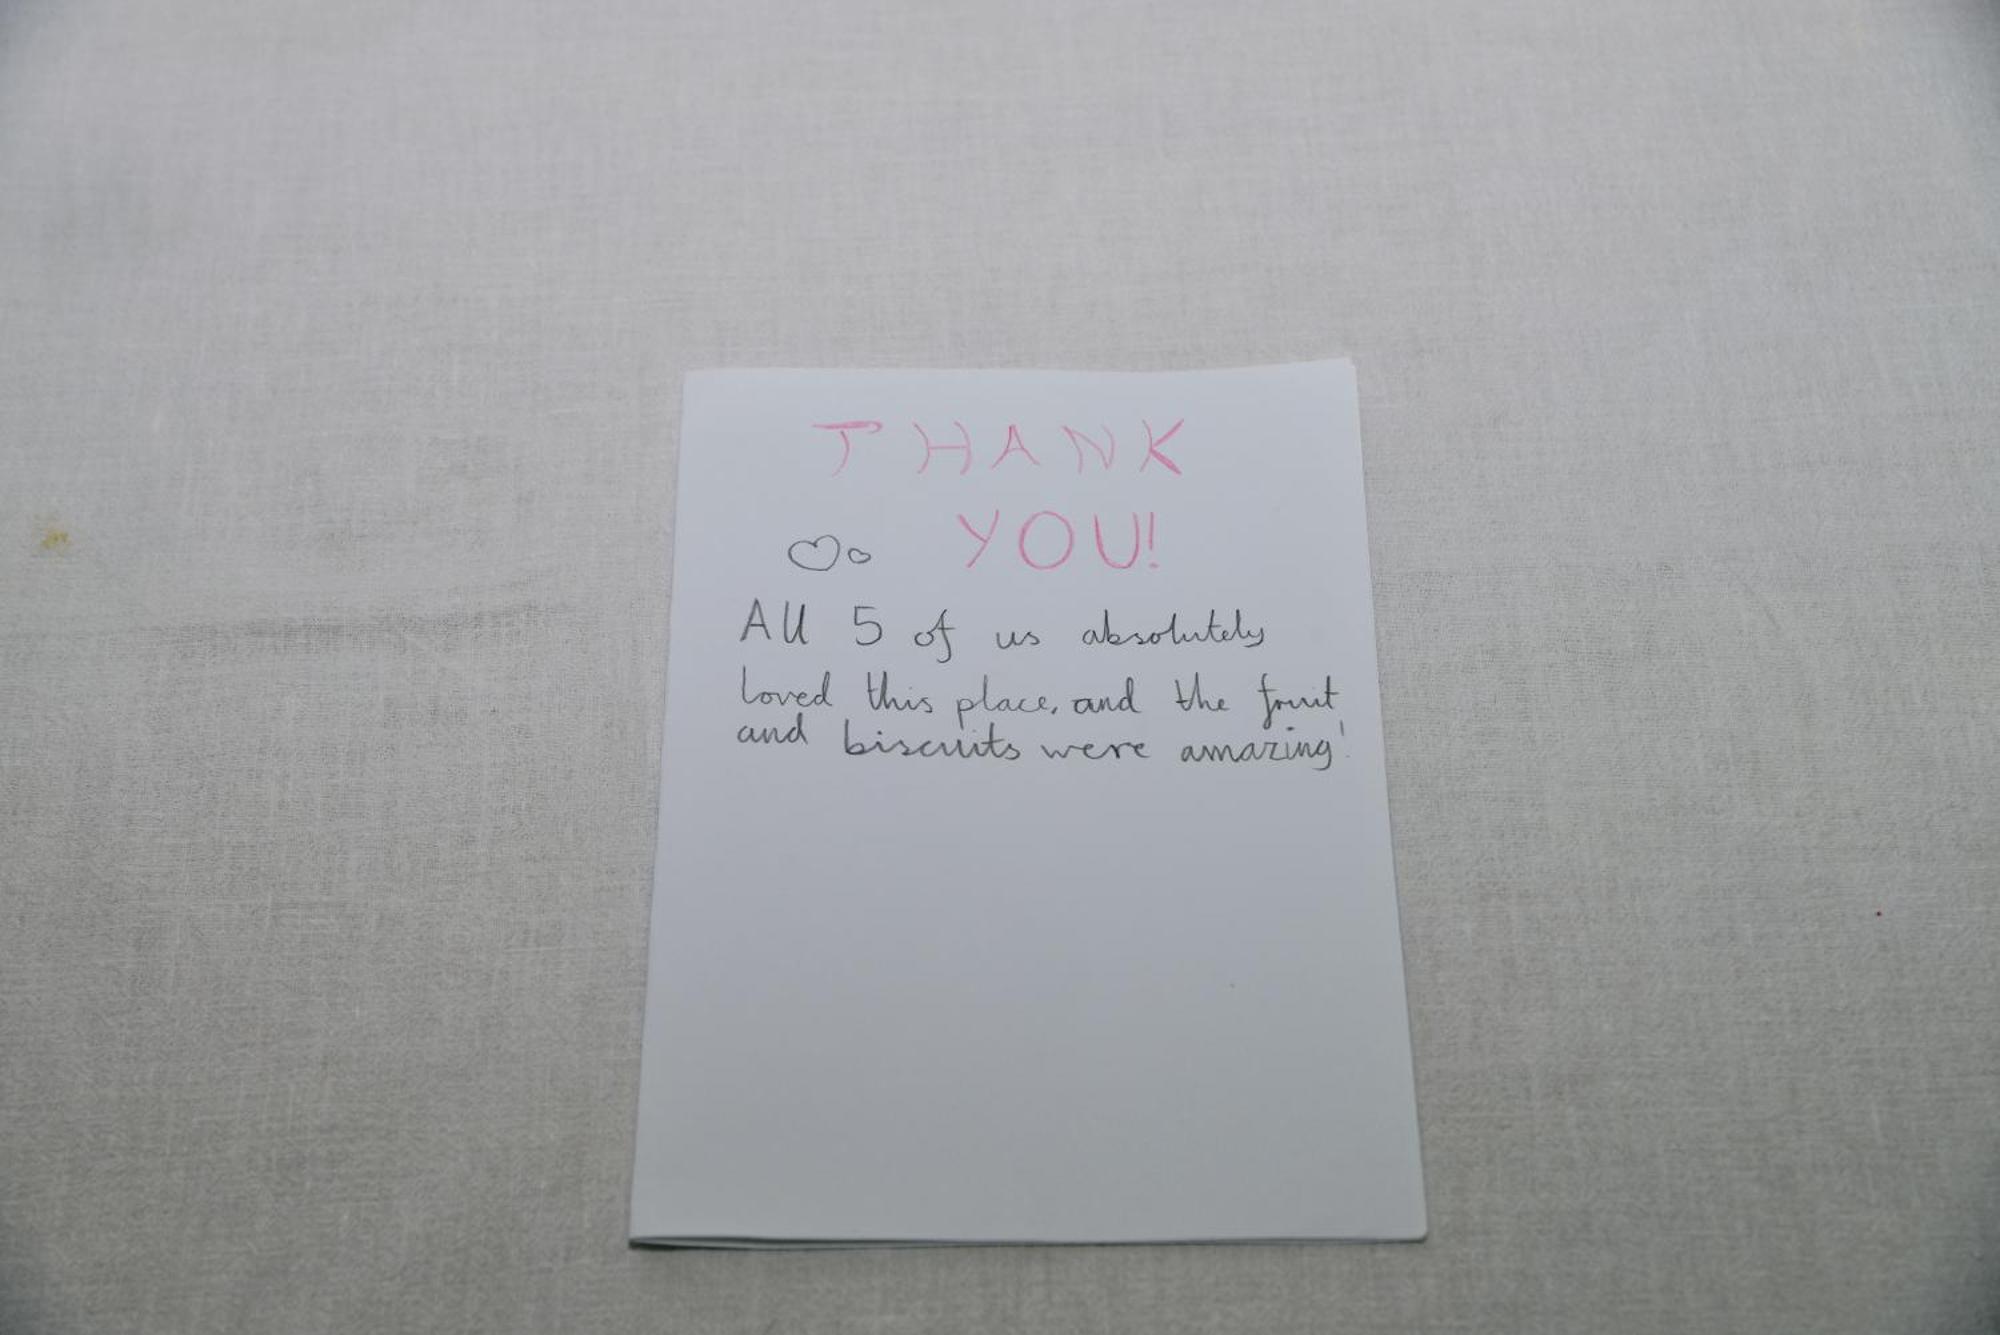 THANK
YOU!
All 5 of us absolutely
loved this place, and the fruit
and biscuits were amazing!